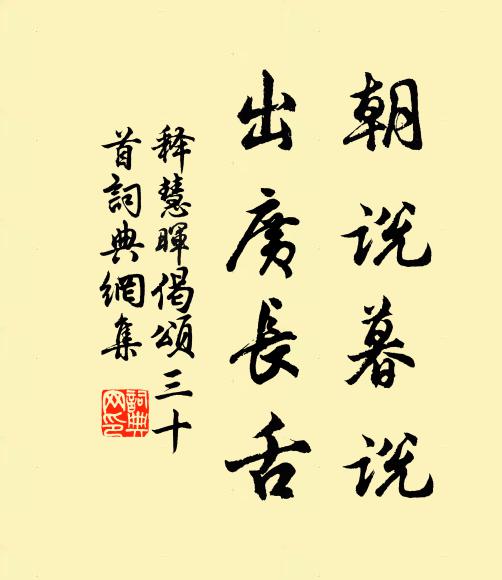 朝说暮说
出广長舌
释慧暉偈頌三十
首詞典網集
詞典
网印